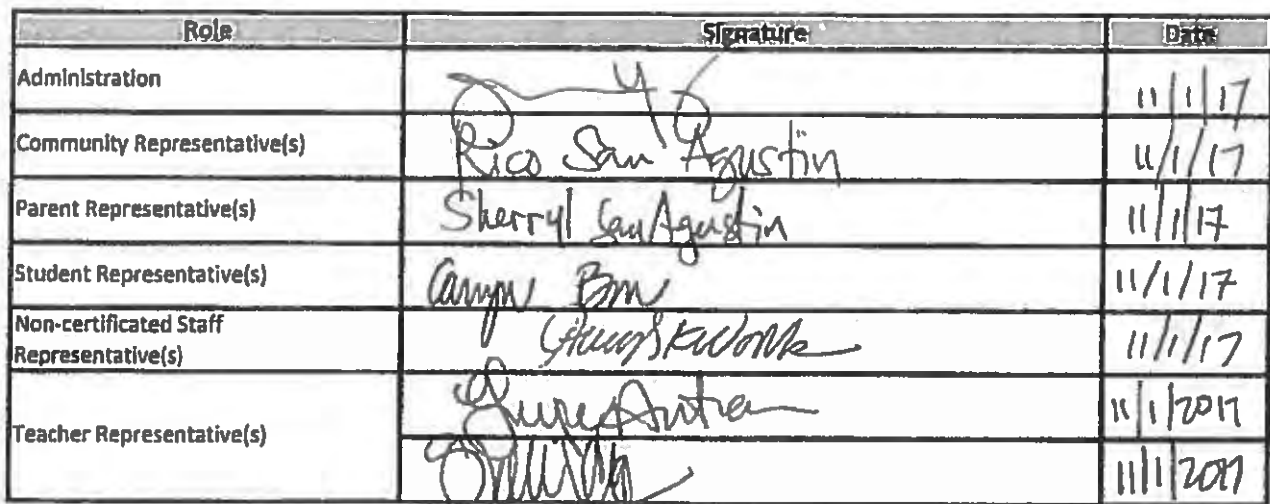 Role Signature Date
Administration 11/1/17
Community Representative(s) Rico San Agustin 11/1/17
Parent Representative(s) Sherryl San Agustin 11/1/17
Student Representative(s) 11/1/17
Non-certificated Staff
Representative(s) 11/1/17
Teacher Representative(s) 11/1/2017
11/1/2017